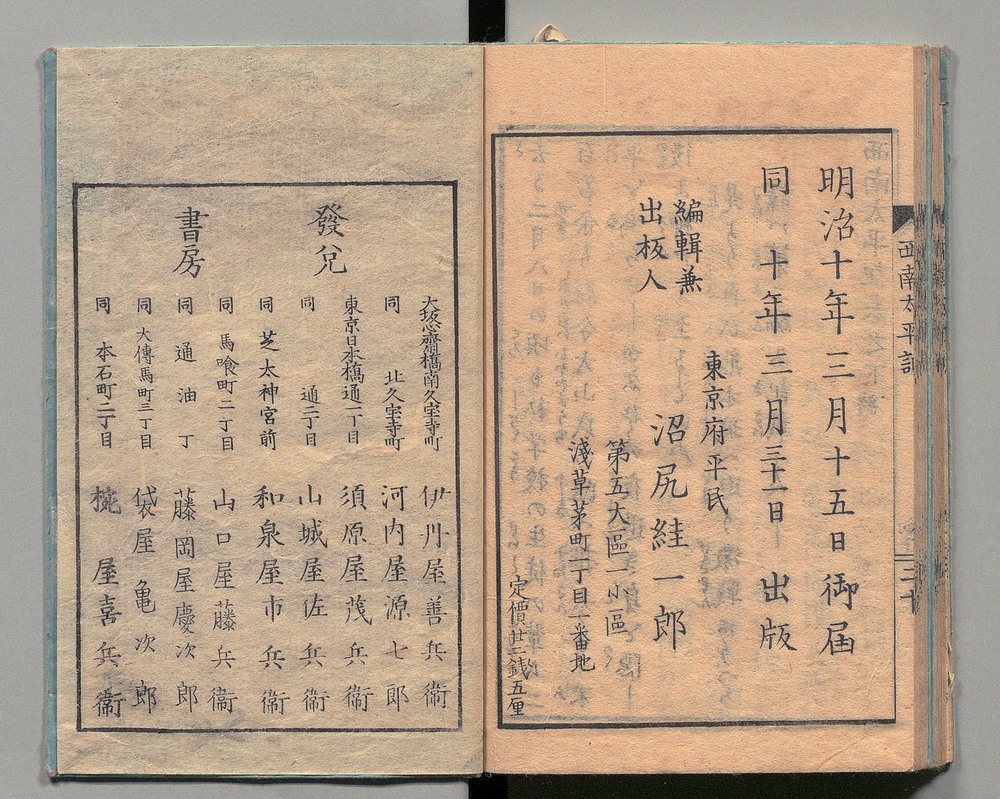 明治十年三月十五日御届
同十年三月三十一日出版
編輯兼
出板人
東京府平民
沼尻絓一郎
第五大區一小區
淺草茅町二丁目二番地
定價廿二銭五厘
西南太平記
二十
發兌
書房
大坂心齋橋南久宝寺町 伊丹屋善兵衞
同 北久宝寺町 河内屋源七郎
東京日本橋通一丁目 須原屋茂兵衞
同 通二丁目 山城屋佐兵衞
同 芝太神宮前 和泉屋市兵衞
同 馬喰町二丁目 山口屋藤兵衞
同 通油丁 藤岡屋慶次郎
同 大傳馬町三丁目 袋屋亀次郎
同 本石町二丁目 椀屋喜兵衞